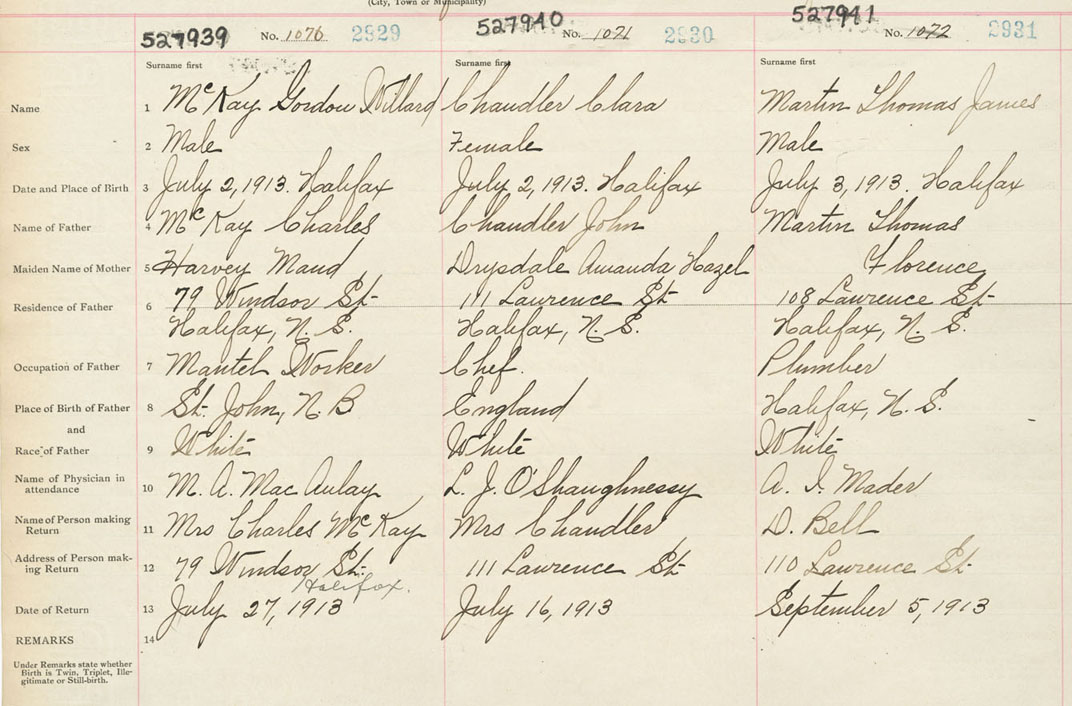 (City, Town or Municipality)
527939 No. 1076 2929 527940 No. 1071 2930 527941 No. 1072 2931
Surname first Surname first Surname first
Name 1 McKay Gordon Willard Chandler Clara Martin Thomas James
Sex 2 Male Female Male
Date and Place of Birth 3 July 2, 1913. Halifax July 2, 1913. Halifax July 3, 1913. Halifax
Name of Father 4 McKay Charles Chandler John Martin Thomas
Maiden Name of Mother 5 Harvey Maud Drysdale Amanda Hazel Florence
Residence of Father 6 79 Windsor St. 111 Lawrence St. 108 Lawrence St.
Halifax, N. S. Halifax, N. S. Halifax, N. S.
Occupation of Father 7 Mantel Worker Chef. Plumber
Place of Birth of Father 8 St. John, N. B England Halifax, N. S.
and
Race of Father 9 White White White
Name of Physician in
attendance 10 M. A. MacAulay L. J. O'Shaughnessy A. I. Mader
Name of Person making
Return 11 Mrs Charles McKay Mrs Chandler D. Bell
Address of Person mak-
ing Return 12 79 Windsor St. 111 Lawrence St. 110 Lawrence St.
Halifax.
Date of Return 13 July 27, 1913 July 16, 1913 September 5, 1913
REMARKS 14
Under Remarks state whether
Birth is Twin, Triplet, Ille-
gitimate or Still-birth.